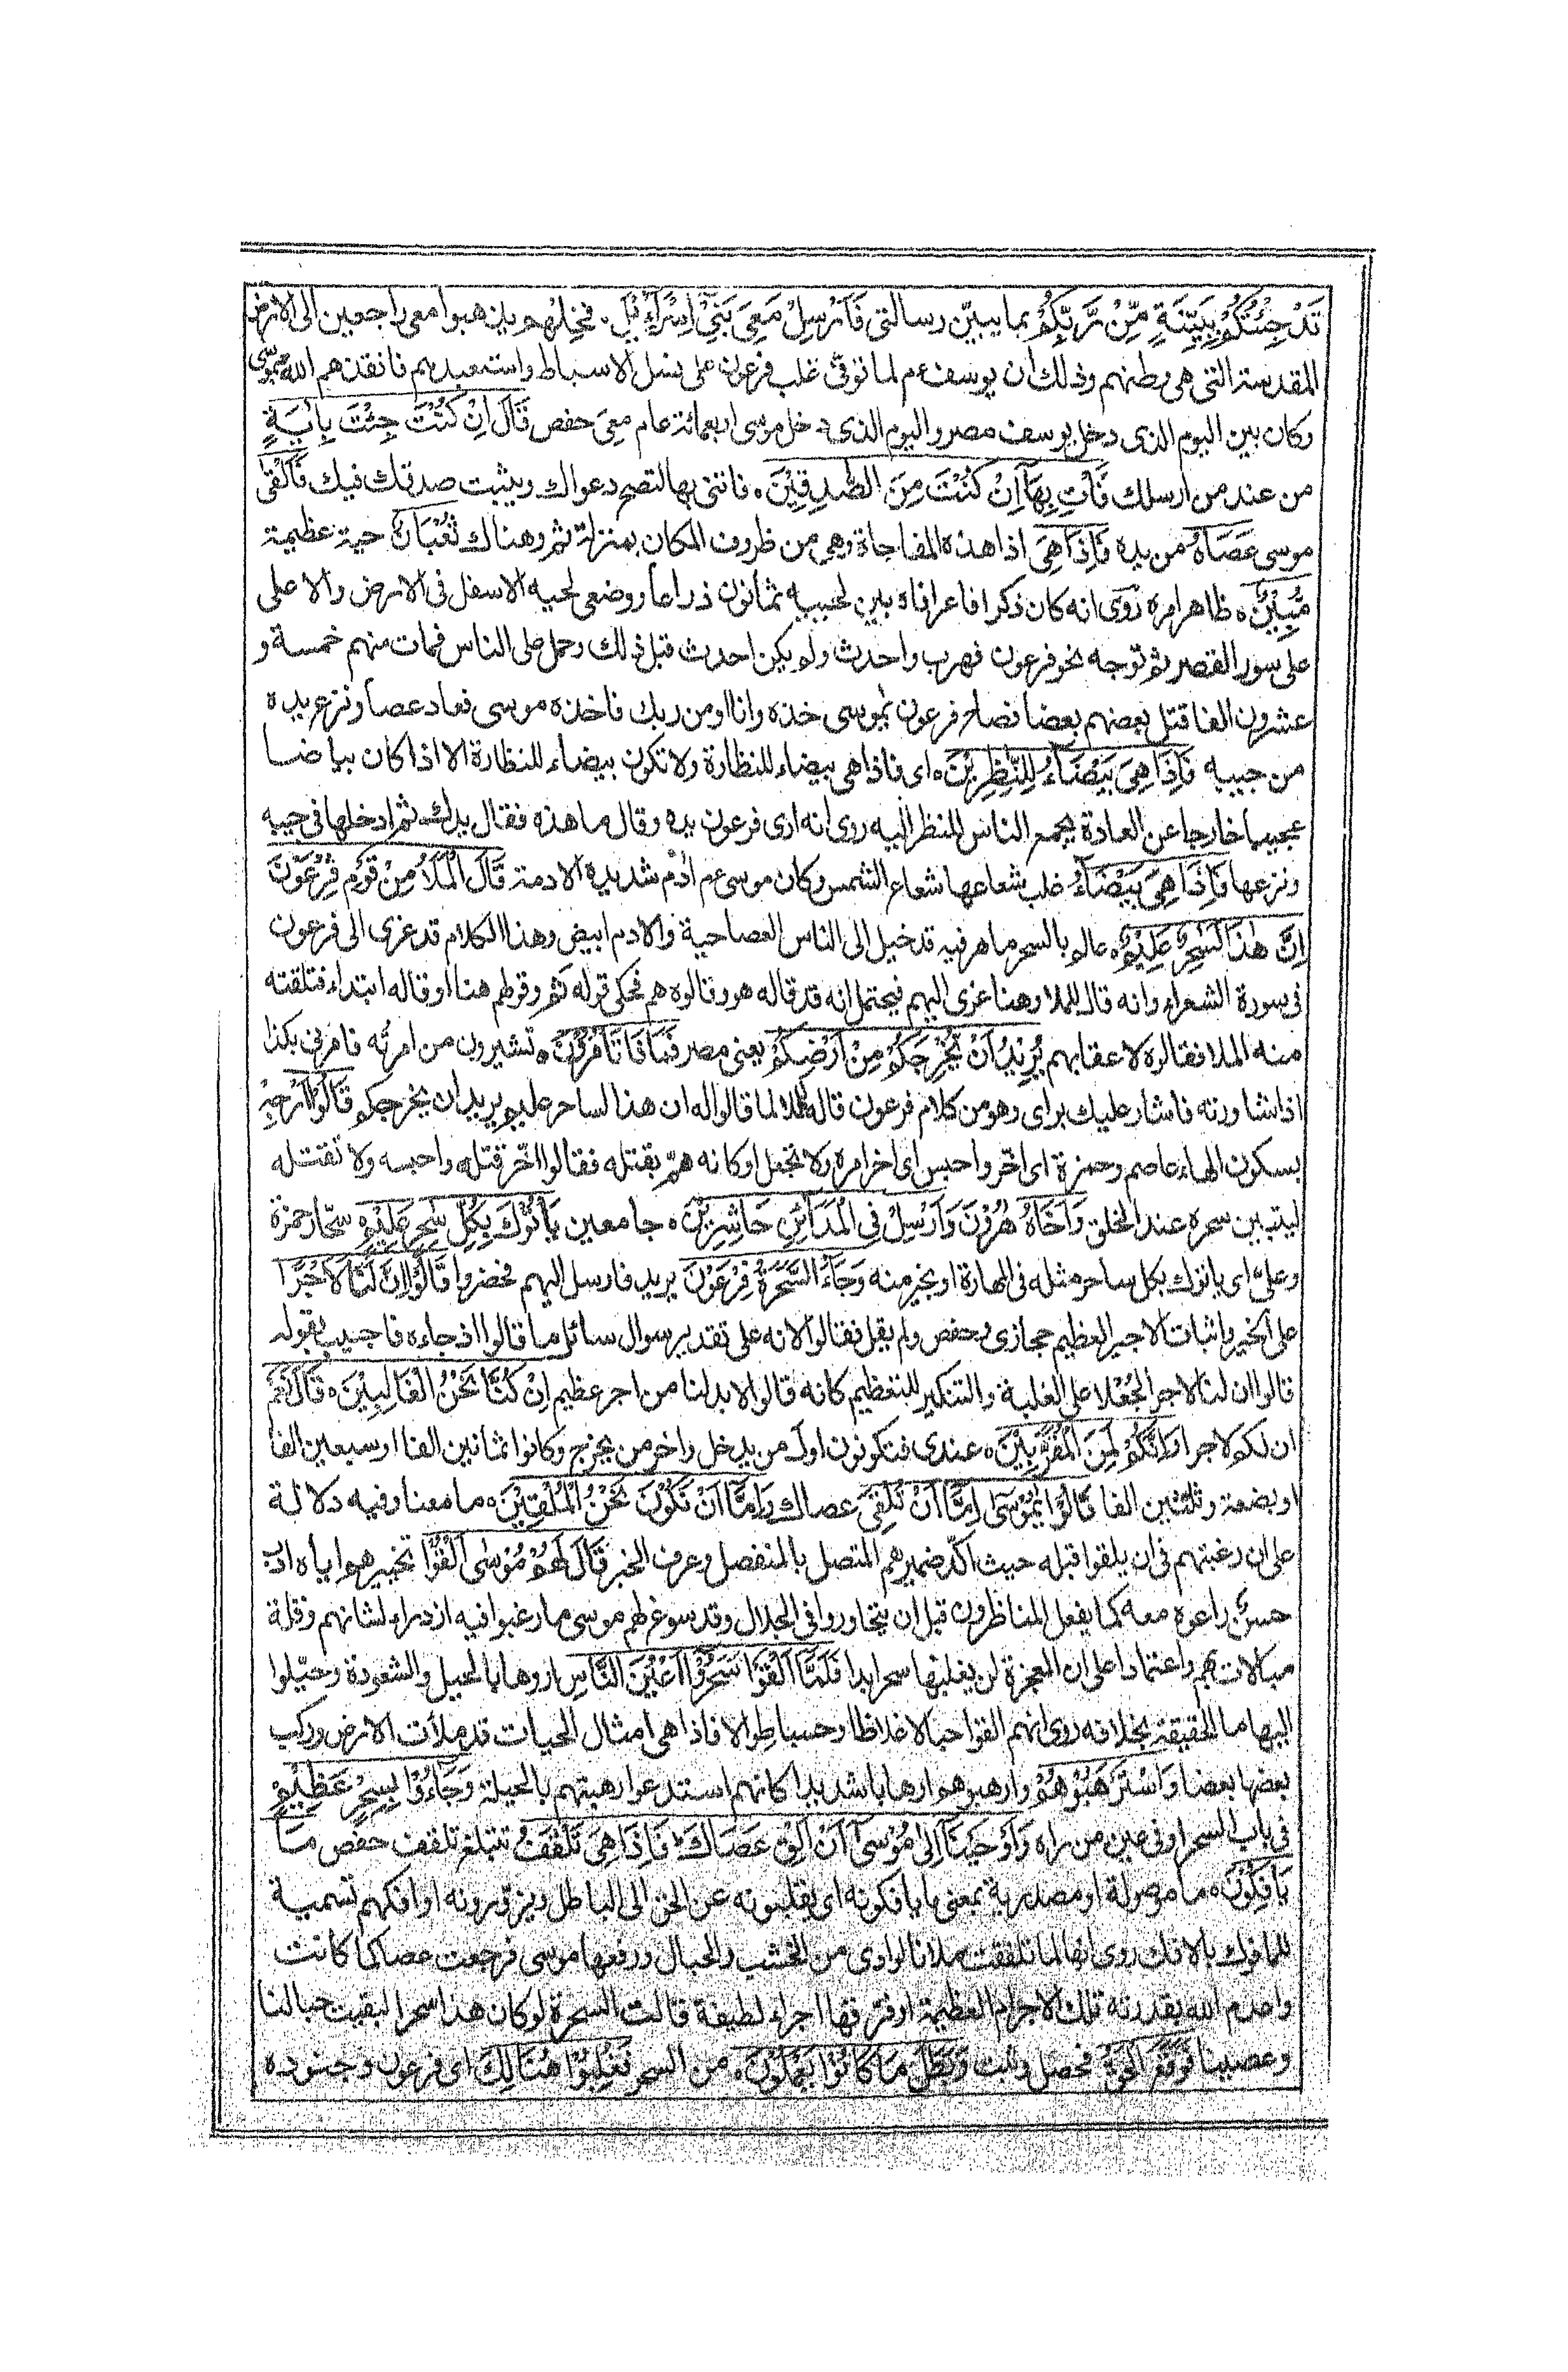 قَدْ جِئْتُكُمْ بِبَيِّنَةٍ مِّنْ رَّبِّكُمْ بما يبيّن رسالتى فَاَرْسِلْ مَعِىَ بَنِىْ اِسْرَآءِيْلَ۔ فخلهم يذهبوا معى راجعين الى الارض
المقدسة التى هى وطنهم وذلك ان يوسف عم لما توفّى غلب فرعون على نسل الاسباط واستعبدهم فانقذهم الله بموسى
وكان بين اليوم الذى دخل يوسف مصر واليوم الذى دخل موسى اربعمائة عام معى حفص قَالَ اِنْ كُنْتَ جِئْتَ بِاٰيَةٍ
من عند من ارسلك فَاْتِ بِهَآ اِنْ كُنْتَ مِنَ الصّٰدِقِيْنَ۔ فاتنى بها لتصح دعواك ويثبت صدقك فيك فَاَلْقٰى
موسى عَصَاهُ من يده فَاِذَا هِىَ اذا هذه المفاجاة وهى من ظروف المكان بمنزلة ثم وهناك ثُعْبَانٌ حية عظيمة
مُّبِيْنٌ۔ ظاهر امره رُوى انه كان ذكرا فاغرا فاه بين لحييه ثمانون ذراعا ووضع لحيه الاسفل فى الارض والاعلى
على سور القصر ثم توجه نحو فرعون فهرب واحدث ولم يكن احدث قبل ذلك وحمل على الناس فمات منهم خمسة و
عشرون الفا قتل بعضهم بعضا فصاح فرعون يٰموسى خذه وانا اومن ربك فاخذه موسى فعاد عصا ونزع يده
من جيبه فَاِذَا هِىَ بَيْضَآءُ لِلنّٰظِرِيْنَ۔ اى فاذا هى بيضاء للنظارة ولا تكون بيضاء للنظارة الا اذا كان بياضا
عجيبا خارجا عن العادة يجمع الناس للنظر اليه روى انه ارى فرعون يده وقال ما هذه فقال يدك ثم ادخلها فى جيبه
ونزعها فَاِذَا هِىَ بَيْضَآءُ غلب شعاعها شعاع الشمس وكان موسى عم اٰدم شديد الادمة قَالَ الْمَلَاُ مِنْ قَوْمِ فِرْعَوْنَ
اِنَّ هٰذَا لَسٰحِرٌ عَلِيْمٌ۔ عالم بالسحر ماهر فيه قد خيل الى الناس العصا حية والادم ابيض وهذا الكلام قد عزى الى فرعون
فى سورة الشعراء وانه قال للملا وهنا عزى اليهم فيحتمل انه قد قاله هو وقالوه هم فحكى قوله ثم وقولهم هنا او قاله ابتداء فتلقته
منه الملا فقالوه لاعقابهم يُرِيْدُ اَنْ يُّخْرِجَكُمْ مِنْ اَرْضِكُمْ يعنى مصر فَمَاذَا تَاْمُرُوْنَ۔ تشيرون من امرته فامرنى بكذا
اذا شاورته فاشار عليك براى وهو من كلام فرعون قاله للملا لما قالوا له ان هذا لساحر عليم يريد ان يخرجكم قَالُوْٓا اَرْجِهْ
بسكون الهاء عاصم وحمزة اى اخّر واحبس اى اخر امره ولا تعجل او كانه همّ بقتله فقالوا اخّر قتله واحبسه ولا تقتله
ليتبين سحره عند الخلق وَاَخَاهُ هٰرُوْنَ وَاَرْسِلْ فِى الْمَدَآئِنِ حَاشِرِيْنَ۔ جامعين يَاْتُوْكَ بِكُلِّ سٰحِرٍ عَلِيْمٍ۔ سحّار حمزة
وعلىّ اى ياتوك بكل ساحر مثله فى المهارة او بخير منه وَجَآءَ السَّحَرَةُ فِرْعَوْنَ يريد فارسل اليهم فحضروا قَالُوْٓا اِنَّ لَنَا لَاَجْرًا
على الخبر واثبات الاجر العظيم حجازى وحفص ولم يقل فقالوا لانه على تقدير سوال سائل ما قالوا اذ جاءه فاجيب بقوله
قالوا ان لنا لاجرا لجُعْلا على الغلبة والتنكير للتعظيم كانه قالوا لا بد لنا من اجر عظيم اِنْ كُنَّا نَحْنُ الْغَالِبِيْنَ۔ قَالَ نَعَمْ
ان لكم لاجرا وَاِنَّكُمْ لَمِنَ الْمُقَرَّبِيْنَ۔ عندى فتكونون اول من يدخل واخر من يخرج وكانوا ثمانين الفا او سبعين الفا
او بضعة وثلثين الفا قَالُوْا يٰمُوْسٰٓى اِمَّآ اَنْ تُلْقِىَ عصاك وَاِمَّآ اَنْ نَّكُوْنَ نَحْنُ الْمُلْقِيْنَ۔ ما معنا وفيه دلالة
على ان رغبتهم فى ان يلقوا قبله حيث اكّد ضميرهم المتصل بالمنفصل وعرف الخبر قَالَ لَهُمْ مُوْسٰى اَلْقُوْا تخييرهم اياه ادب
حسن راعوه معه كما يفعل المناظرون قبل ان يتحاوروا فى الجدال وقد سوغ لهم موسى ما رغبوا فيه ازدراء لشانهم وقلة
مبالات بهم واعتمادا على ان المعجزة لن يغلبها سحر ابدا فَلَمَّآ اَلْقَوْا سَحَرُوْٓا اَعْيُنَ النَّاسِ اروها بالحيل والشعوذة وخيّلوا
اليها ما الحقيقة بخلافه روى انهم القوا حبالا غلاظا وخشبا طوالا فاذا هى امثال الحيات قد ملأت الارض وركب
بعضها بعضا وَاسْتَرْهَبُوْهُمْ وارهبوهم ارهابا شديدا كانهم استدعوا رهبتهم بالحيلة وَجَآءُوْا بِسِحْرٍ عَظِيْمٍ
فى باب السحر او فى عين من راه وَاَوْحَيْنَآ اِلٰى مُوْسٰٓى اَنْ اَلْقِ عَصَاكَ فَاِذَا هِىَ تَلْقَفُ تبتلع تلقف حفص مَا
يَاْفِكُوْنَ۔ ما موصولة او مصدرية بمعنى ما يافكونه اى يقلبونه عن الحق الى الباطل ويزوّرونه او افكهم تسمية
للمافوك بالافك روى انها لما تلقفت ملا الوادى من الخشب والحبال ورفعها موسى فرجعت عصا كما كانت
واعدم الله بقدرته تلك الاجرام العظيمة او فرّقها اجزاء لطيفة قالت السحرة لو كان هذا سحرا لبقيت حبالنا
وعصينا فَوَقَعَ الْحَقُّ فحصل وثبت وَبَطَلَ مَا كَانُوْا يَعْمَلُوْنَ۔ من السحر فَغُلِبُوْا هُنَالِكَ اى فرعون وجنوده